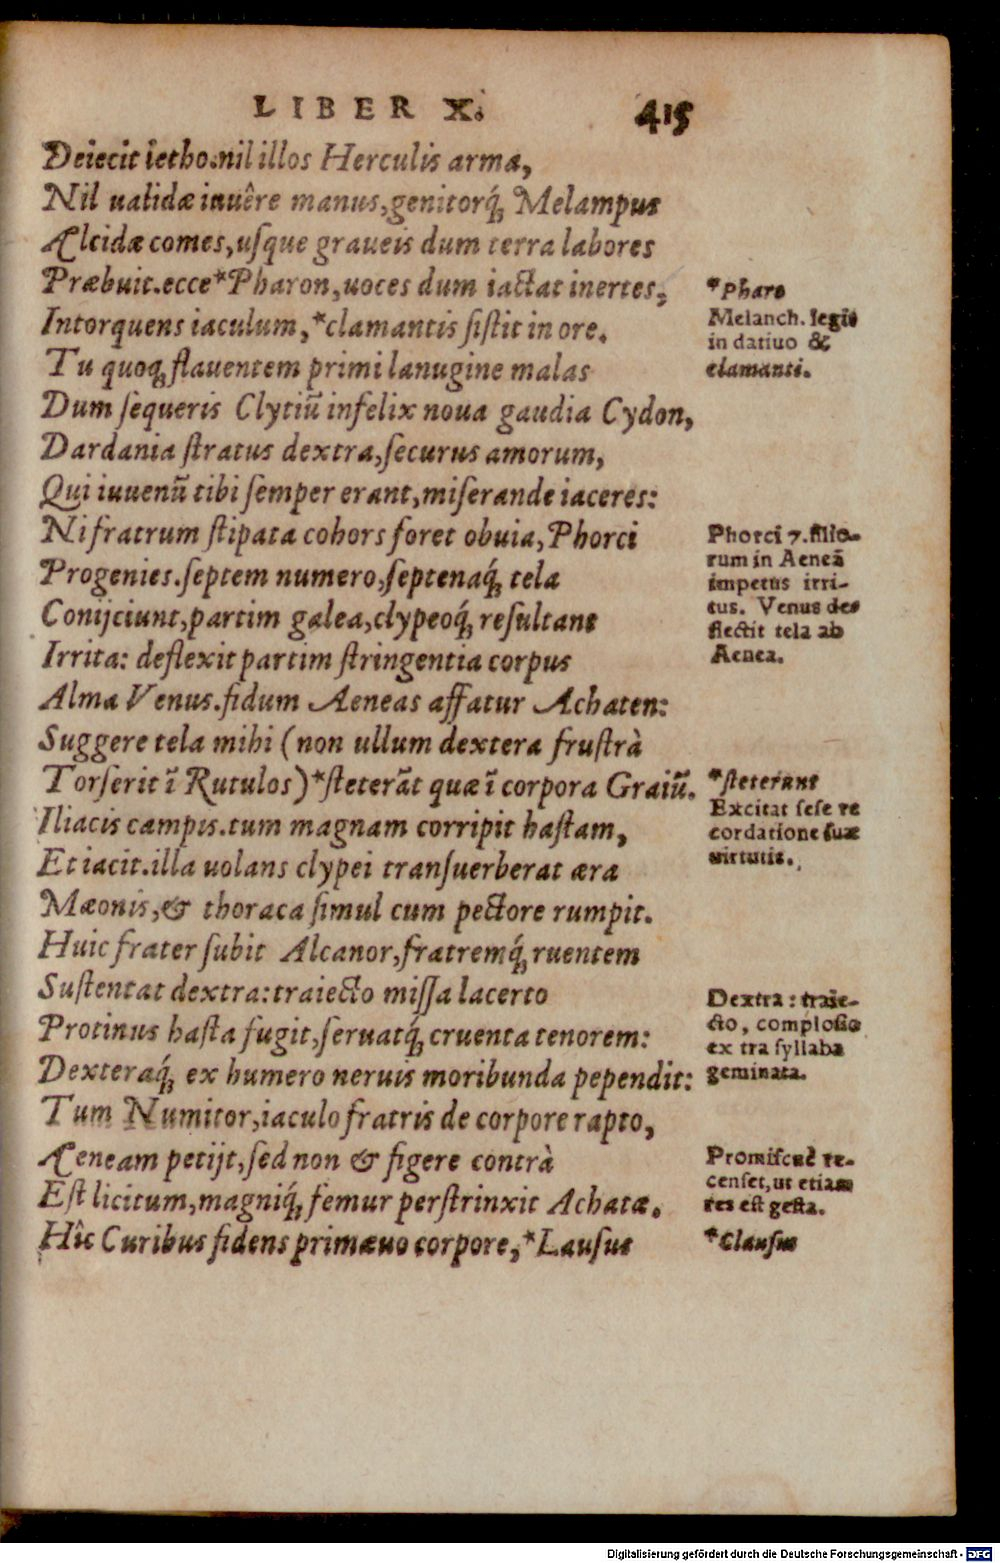 LIBER X. 415
Deiecit letho.nil illos Herculis arma,
Nil ualidæ iuuêre manus,genitorq́ꝫ Melampus
Ælcidæ comes,uſque graueis dum terra labores
Præbuit.ecce*Pharon,uoces dum iactat inertes,
Intorquens iaculum,*clamantis ſiſtit in ore.
Tu quoqꝫ flauentem primi lanugine malas
Dum ſequeris Clytiũ infelix noua gaudia Cydon,
Dardania ſtratus dextra,ſecurus amorum,
Qui iuuenũ tibi ſemper erant,miſerande iaceres:
Ni fratrum ſtipata cohors foret obuia,Phorci
Progenies.ſeptem numero,ſeptenaq́ꝫ tela
Conijciunt,partim galea,clypeoq́ꝫ reſultant
Irrita: deflexit partim ſtringentia corpus
Alma Venus.fidum Aeneas affatur Achaten:
Suggere tela mihi (non ullum dextera fruſtrà
Torſerit ĩ Rutulos)*ſteterãt quæ ĩ corpora Graiũ.
Iliacis campis.tum magnam corripit haſtam,
Et iacit.illa uolans clypei tranſuerberat æra
Mæonis,& thoraca ſimul cum pectore rumpit.
Huic frater ſubit Alcanor,fratremq́ꝫ ruentem
Suſtentat dextra:traiecto miſſa lacerto
Protinus haſta fugit,ſeruatq́ꝫ cruenta tenorem:
Dexteraq́ꝫ ex humero neruis moribunda pependit:
Tum Numitor,iaculo fratris de corpore rapto,
Æeneam petijt,ſed non & figere contrà
Eſt licitum,magniq́ꝫ femur perſtrinxit Achatæ.
Hîc Curibus fidens primæuo corpore,*Lauſus
*Pharo
Melanch. legit
in datiuo &
clamanti.
Phorci 7.filio-
rum in Aeneã
impetus irri-
tus. Venus de
flectit tela ab
Aenea.
*ſteterunt
Excitat ſeſe re
cordatione ſuæ
uirtutis.
Dextra: traie-
cto, comploſio
ex tra ſyllaba
geminata.
Promiſcuè re-
cenſet,ut etiam
res eſt geſta.
*Clauſus
Digitalisierung gefördert durch die Deutsche Forschungsgemeinschaft - DFG